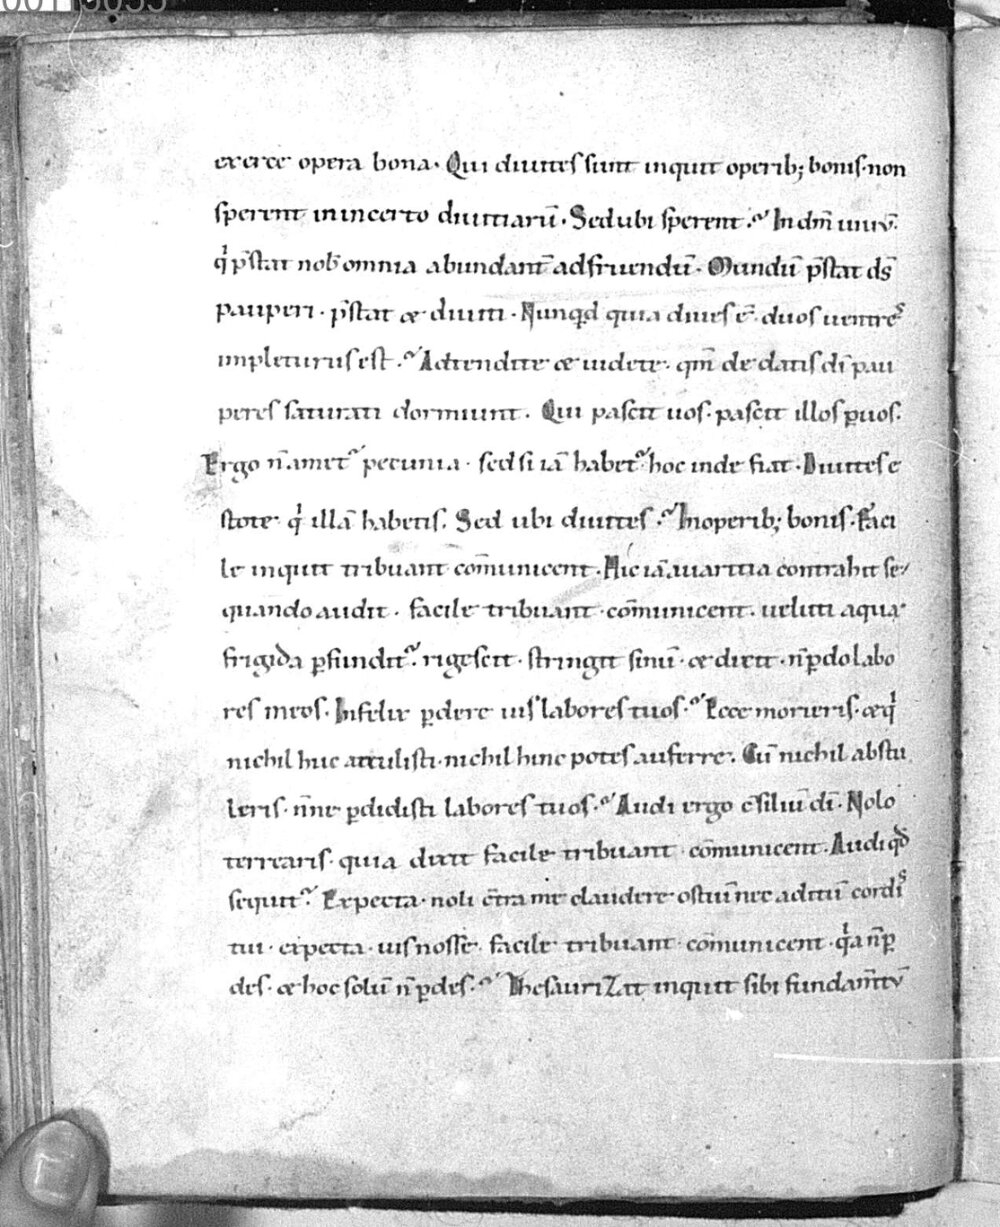 exerce opera bona. Qui diuites sunt inquit operib; bonis. non
sperent in incerto diuitiarū. Sed ubi sperent? In dm̄ uiuū.
qͥ p̄stat nob̄ omnia abundant̄ ad fruendū. Mundū p̄stat ds̄
pauperi. p̄stat & diuiti. Nunqd quia diues ē. duos uentres
impleturus est? Adtendite & uidete. qm̄ de datis dī pau
peres saturati dormiunt. Qui pascit uos. pascit illos p̱ uos.
Ergo n̄ amet᷑ pecunia. sed si iā habet᷑ hoc inde fiat. Diuites e
stote. qͥ illā habetis. Sed ubi diuites? In operib; bonis. Faci
le inquit tribuant cōmunicent. Hic iā auaritia contrahit se/
quando audit. facile tribuant. cōmunicent. ueluti aqua
frigida p̱fundit᷑. rigescit. stringit sinū. & dicit. n̄ p̱do labo
res meos. Infelix p̱dere uis labores tuos? Ecce morieris. & qͥ
nichil huc attulisti. nichil hinc potes auferre. Cū nichil abstu
leris. n̄ne p̱didisti labores tuos? Audi ergo c̄siliū dī. Nolo
terrearis. quia dixit facile tribuant. cōmunicent. Audi qd̄
sequit᷑. Expecta. noli c̄tra me claudere ostiū nec aditū cordis
tui. expecta. uis nosse. facile tribuant. cōmunicent. qͥa n̄ p̱
des. & hoc solū n̄ p̱des? Thesaurizit inquit sibi fundam̄tū